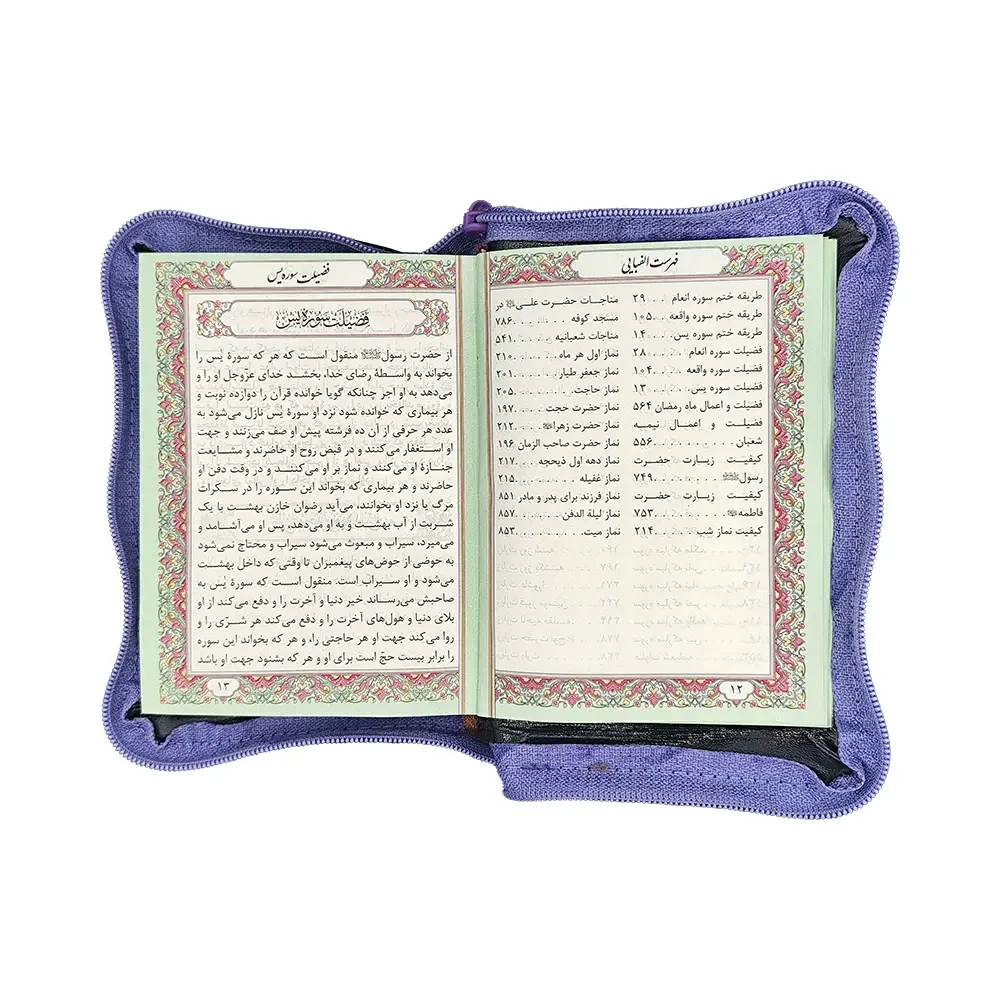 فهرست الفبایی
طریقه ختم سوره انعام ... ۲۹
طریقه ختم سوره واقعه ... ۱۰۵
طریقه ختم سوره یس ... ۱۴
فضیلت سوره انعام ... ۲۸
فضیلت سوره واقعه ... ۱۰۴
فضیلت سوره یس ... ۱۳
فضیلت و اعمال ماه رمضان ۵۶۴
فضیلت و اعمال نیمه
شعبان ... ۵۵۶
کیفیت زیارت حضرت
رسول ﷺ ... ۷۴۹
کیفیت زیارت حضرت
فاطمه ... ۷۵۳
کیفیت نماز شب ... ۲۱۴
مناجات حضرت علی در
مسجد کوفه ... ۷۸۶
مناجات شعبانیه ... ۵۴۱
نماز اول هر ماه ... ۲۱۰
نماز جعفر طیار ... ۲۰۱
نماز حاجت ... ۲۰۵
نماز حضرت حجت ... ۱۹۷
نماز حضرت زهرا ... ۲۱۲
نماز حضرت صاحب الزمان ۱۹۶
نماز دهه اول ذیحجه ... ۲۱۷
نماز غفیله ... ۲۱۵
نماز فرزند برای پدر و مادر ۸۵۱
نماز لیلة الدفن ... ۸۵۷
نماز میت ... ۸۵۳
۱۲
فضیلت سوره یس
فضیلت سوره یس
از حضرت رسول ﷺ منقول است که هر که سورهٔ یٰس را
بخواند به واسطهٔ رضای خدا، بخشد خدای عزّوجل او را و
می‌دهد به او اجر چنانکه گویا خوانده قرآن را دوازده نوبت و
هر بیماری که خوانده شود نزد او سورهٔ یٰس نازل می‌شود به
عدد هر حرفی از آن ده فرشته پیش او صف می‌زنند و جهت
او استغفار می‌کنند و در قبض روح او حاضرند و مشایعت
جنازهٔ او می‌کنند و نماز بر او می‌کنند و در وقت دفن او
حاضرند و هر بیماری که بخواند این سوره را در سکرات
مرگ یا نزد او بخوانند، می‌آید رضوان خازن بهشت با یک
شربت از آب بهشت و به او می‌دهد، پس او می‌آشامد و
می‌میرد، سیراب و مبعوث می‌شود سیراب و محتاج نمی‌شود
به حوضی از حوض‌های پیغمبران تا وقتی که داخل بهشت
می‌شود و او سیراب است. منقول است که سورهٔ یٰس به
صاحبش می‌رساند خیر دنیا و آخرت را و دفع می‌کند از او
بلای دنیا و هول‌های آخرت را و دفع می‌کند هر شرّی را و
روا می‌کند جهت او هر حاجتی را، و هر که بخواند این سوره
را برابر بیست حجّ است برای او و هر که بشنود جهت او باشد
۱۳